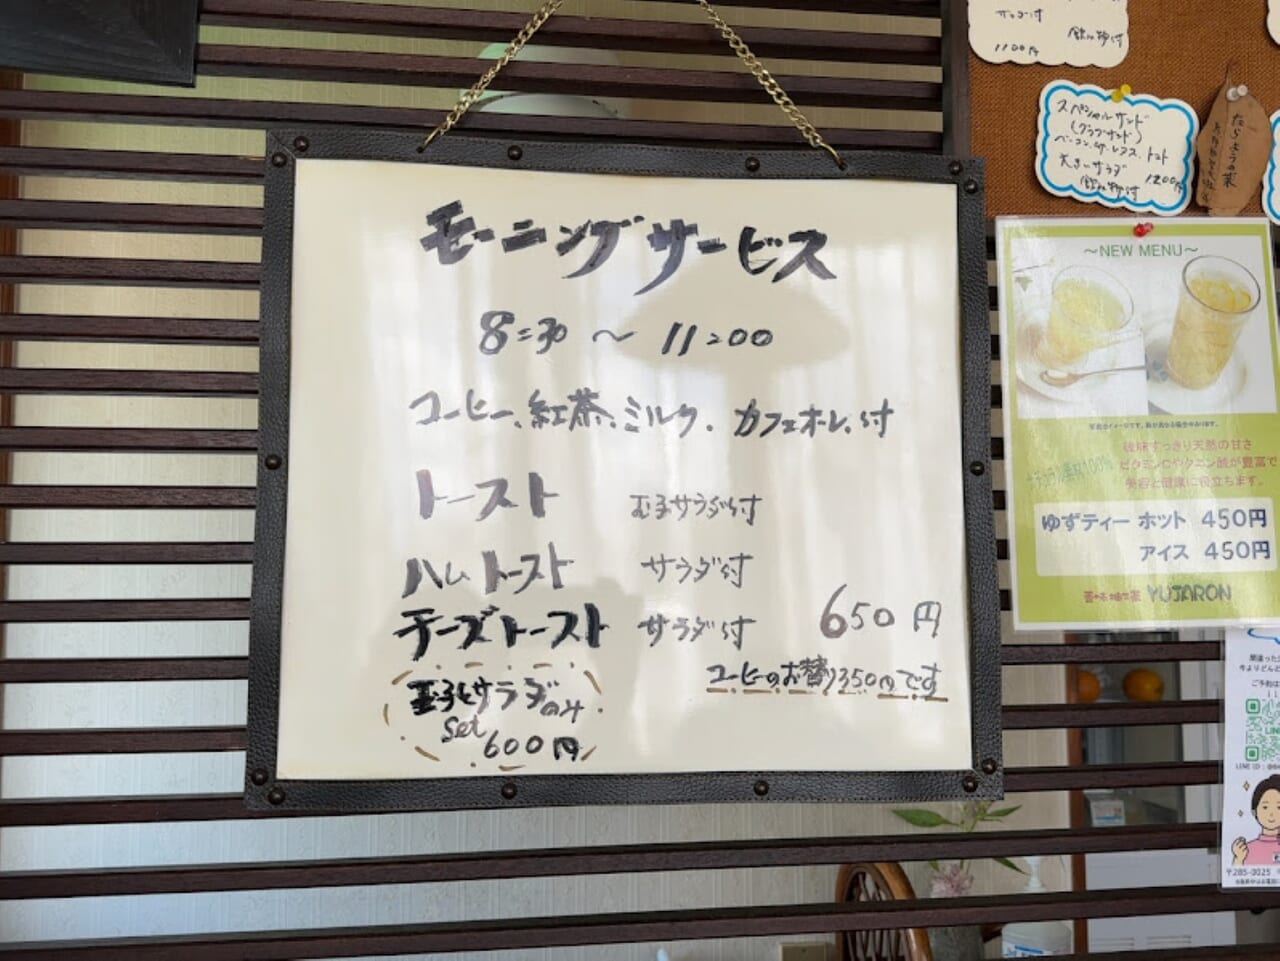 モーニングサービス
8:30 〜 11:00
コーヒー、紅茶、ミルク、カフェオーレ、付
トースト 玉子サラダ付
ハムトースト サラダ付
チーズトースト サラダ付 650円
コーヒーのお替り350円です
玉子とサラダのみ
set 600円
1100円 飲み物付
スペシャルサンド
(クラブサンド)
ベーコン、サーレタス、トマト
大きいサラダ 1200円
飲み物付
〜NEW MENU〜
後味すっきり天然の甘さ
ビタミンCやクエン酸が豊富で
美容と健康に役立ちます。
ゆずティー ホット 450円
アイス 450円
YUJARON
間違った
今よりどんと
ご予約は
LINE
LINE ID:
〒285-0025